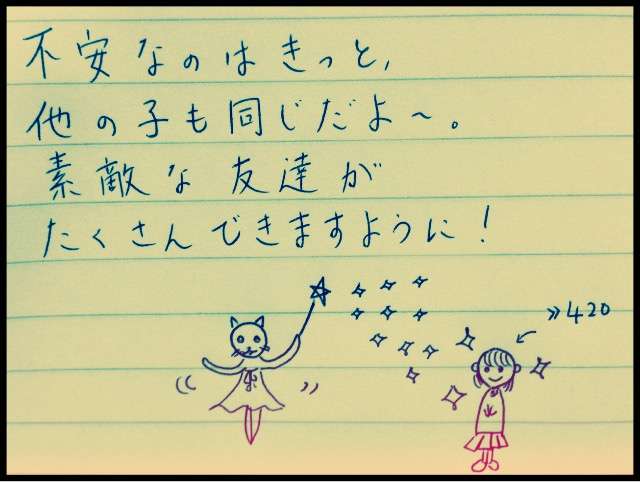 不安なのはきっと、
他の子も同じだよ〜。
素敵な友達が
たくさんできますように!
≫420